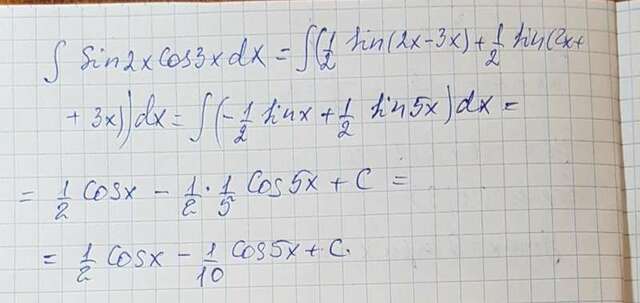 ∫ sin2x cos3x dx = ∫(1/2 sin(2x-3x) + 1/2 sin(2x+
+ 3x))dx = ∫(-1/2 sinx + 1/2 sin5x)dx =
= 1/2 cosx - 1/2 · 1/5 cos5x + C =
= 1/2 cosx - 1/10 cos5x + C.